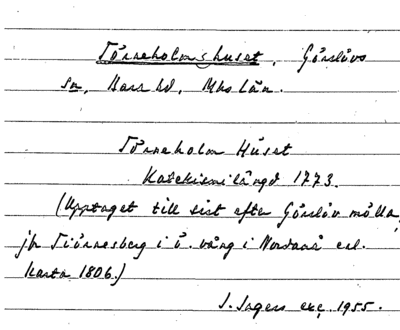 Törneholmshuset, Görslövs
sn, Bara hd, Mhs län.
Törneholm Huset
Katekismilängd 1773.
(Upptaget till sist efter Görslöv mölla,
jfr Tiörnesberg i ö. vång i Nordanå enl.
karta 1806.)
J. Ingers exc. 1955.